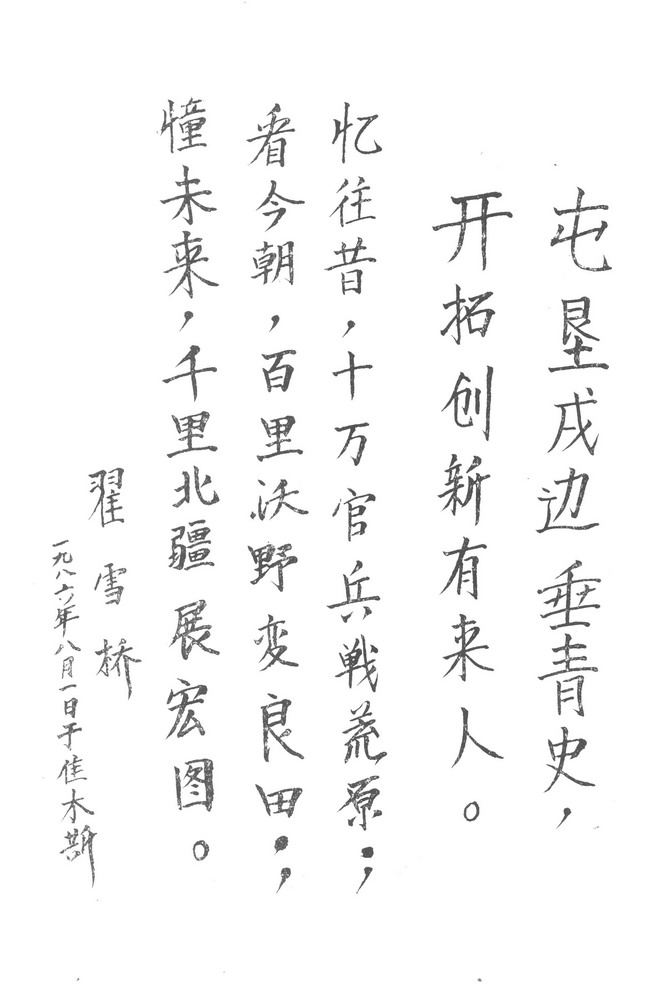 屯垦戍边垂青史，
开拓创新有来人。
忆往昔，十万官兵战荒原；
看今朝，百里沃野变良田；
憧未来，千里北疆展宏图。
翟雪桥
一九八六年八月一日于佳木斯